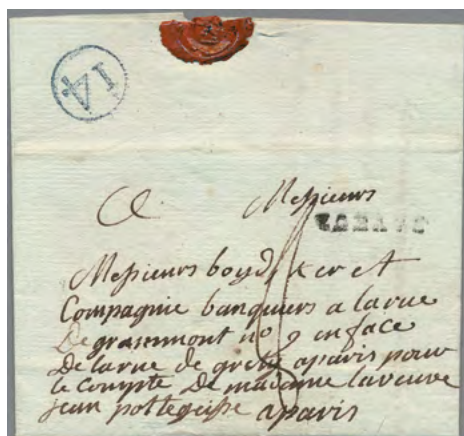 14
A Messieurs
Messieurs boyd, ker et
Compagnie banquiers a larue
De grammont no 9 enface
De larue de gretry aparis pour
le Compte De madame laveuve
jean
aparis